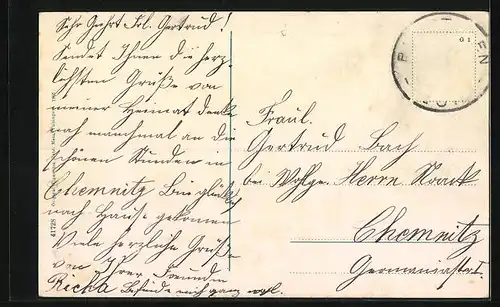 Sehr Geehrt Frl. Gertrud!
Sendet Ihnen die herz-
lichsten Grüße von
meiner Heimat denke
noch manchmal an die
schönen Stunden in
Chemnitz Bin glückl.
nach Hause gekommen
Viele herzliche Grüße
von Ihrer Freundin
Richa Befinde mich ganz wohl.
Fräul.
Gertrud Bach
bei Wohlge. Herrn Noack
Chemnitz
Germaniastr.
41728